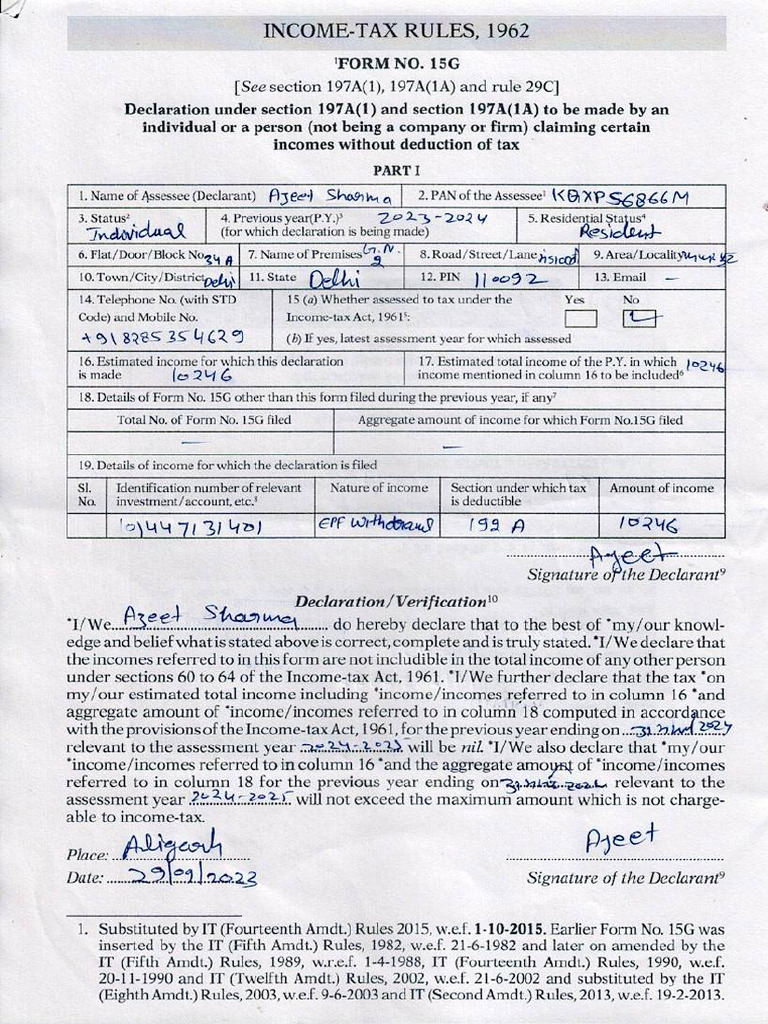 INCOME-TAX RULES, 1962
¹FORM NO. 15G
[See section 197A(1), 197A(1A) and rule 29C]
Declaration under section 197A(1) and section 197A(1A) to be made by an
individual or a person (not being a company or firm) claiming certain
incomes without deduction of tax
PART I
1. Name of Assessee (Declarant) Ajeet Sharma 2. PAN of the Assessee¹ KQXPS6866M
3. Status² Individual 4. Previous year(P.Y.)³ 2023-2024 (for which declaration is being made) 5. Residential Status⁴ Resident
6. Flat/Door/Block No. 34 A 7. Name of Premises G.N. 2 8. Road/Street/Lane 9. Area/Locality
10. Town/City/District Delhi 11. State Delhi 12. PIN 110092 13. Email –
14. Telephone No. (with STD Code) and Mobile No. +918285354629
15 (a) Whether assessed to tax under the Income-tax Act, 1961⁵: Yes No
(b) If yes, latest assessment year for which assessed
16. Estimated income for which this declaration is made 10246
17. Estimated total income of the P.Y. in which income mentioned in column 16 to be included⁶ 10246
18. Details of Form No. 15G other than this form filed during the previous year, if any⁷
Total No. of Form No. 15G filed Aggregate amount of income for which Form No.15G filed
— —
19. Details of income for which the declaration is filed
Sl. No. Identification number of relevant investment/account, etc.⁸ Nature of income Section under which tax is deductible Amount of income
101447131401 EPF Withdrawal 192 A 10246
Ajeet
Signature of the Declarant⁹
Declaration/Verification¹⁰
*I/We Ajeet Sharma do hereby declare that to the best of *my/our knowl-
edge and belief what is stated above is correct, complete and is truly stated. *I/We declare that
the incomes referred to in this form are not includible in the total income of any other person
under sections 60 to 64 of the Income-tax Act, 1961. *I/We further declare that the tax *on
my/our estimated total income including *income/incomes referred to in column 16 *and
aggregate amount of *income/incomes referred to in column 18 computed in accordance
with the provisions of the Income-tax Act, 1961, for the previous year ending on 31 2024
relevant to the assessment year 2024-2025 will be nil. *I/We also declare that *my/our
*income/incomes referred to in column 16 *and the aggregate amount of *income/incomes
referred to in column 18 for the previous year ending on 31 2024 relevant to the
assessment year 2024-2025 will not exceed the maximum amount which is not charge-
able to income-tax.
Place: Aligarh
Ajeet
Date: 29/09/2023
Signature of the Declarant⁹
1. Substituted by IT (Fourteenth Amdt.) Rules 2015, w.e.f. 1-10-2015. Earlier Form No. 15G was
inserted by the IT (Fifth Amdt.) Rules, 1982, w.e.f. 21-6-1982 and later on amended by the
IT (Fifth Amdt.) Rules, 1989, w.r.e.f. 1-4-1988, IT (Fourteenth Amdt.) Rules, 1990, w.e.f.
20-11-1990 and IT (Twelfth Amdt.) Rules, 2002, w.e.f. 21-6-2002 and substituted by the IT
(Eighth Amdt.) Rules, 2003, w.e.f. 9-6-2003 and IT (Second Amdt.) Rules, 2013, w.e.f. 19-2-2013.